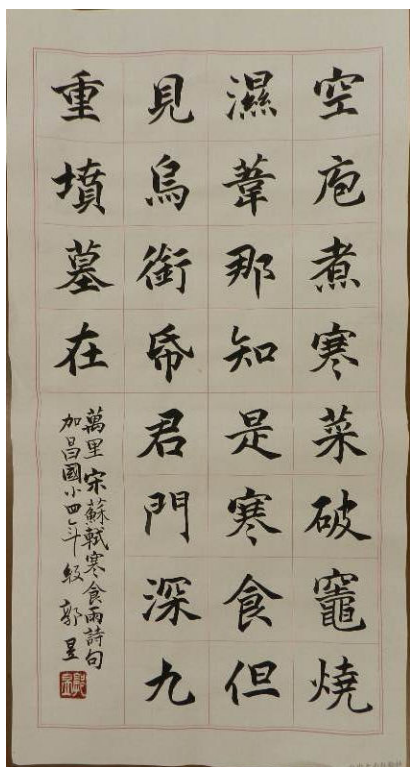 空庖煮寒菜破竈燒
濕葦那知是寒食但
見烏銜帋君門深九
重墳墓在
萬里 宋蘇軾寒食雨詩句
加昌國小四年級 郭昱
郭昱